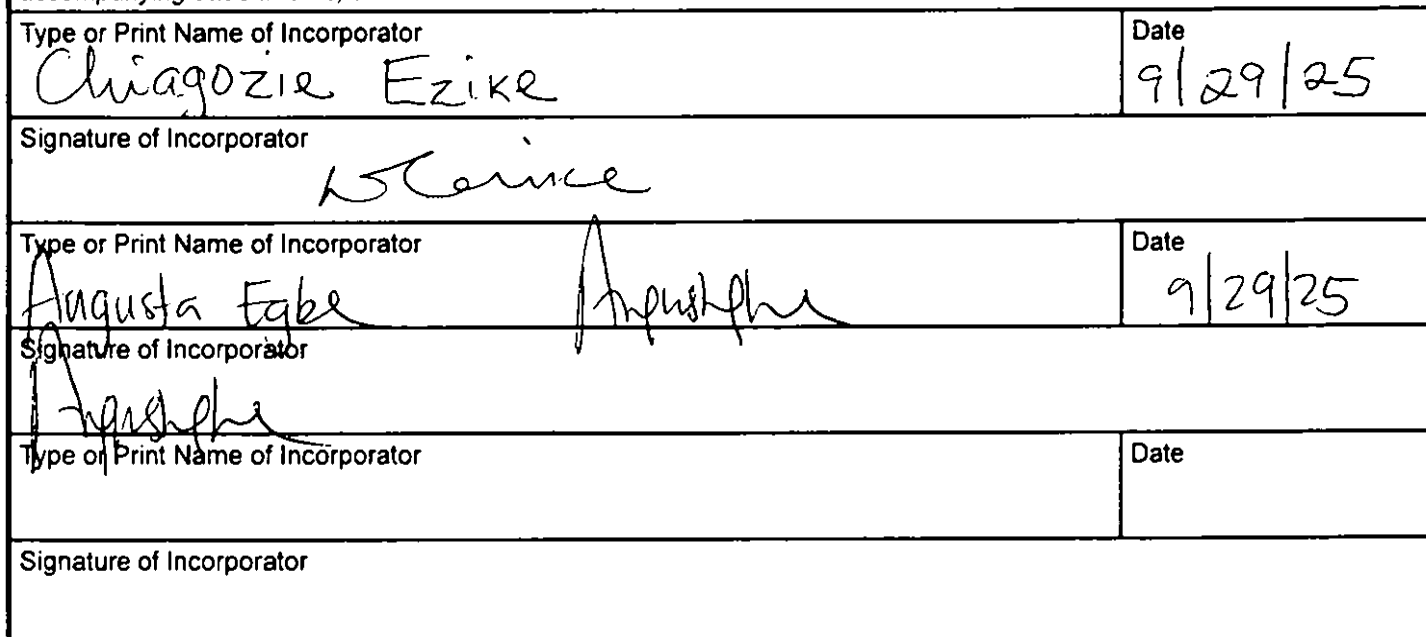 Type or Print Name of Incorporator
Date
Chiagozie Ezike
9/29/25
Signature of Incorporator
Type or Print Name of Incorporator
Date
Augusta Egbe
9/29/25
Signature of Incorporator
Type or Print Name of Incorporator
Date
Signature of Incorporator